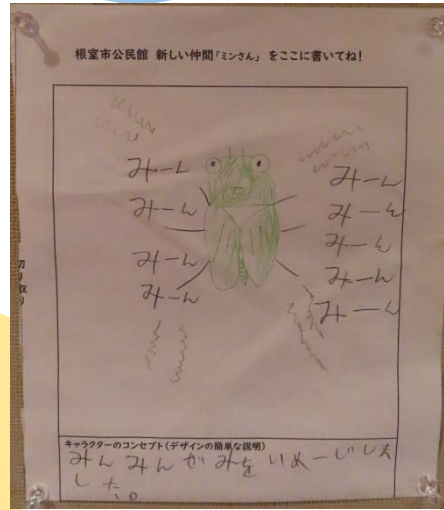 根室市公民館 新しい仲間「ミンさん」 をここに書いてね!
みーん
みーん
みーん
みーん
みーん
みーん
みーん
みーん
みーん
切り取り
キャラクターのコンセプト(デザインの簡単な説明)
みんみんぜみをいめーじしま
した。